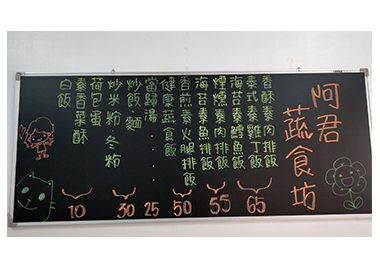 阿君
蔬食坊
香酥素肉排飯
泰式素雞丁飯
海苔素鱈魚飯
煙燻素肉排飯
海苔素魚排飯
香煎素火腿排飯
健康蔬食飯
當歸湯
炒飯.麵
炒米粉.冬粉
荷包蛋
素香菜酥
白飯
65
55
50
25
30
10